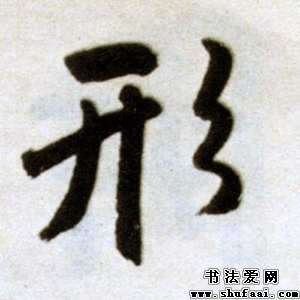 形
书法爱网
www.shufaai.com